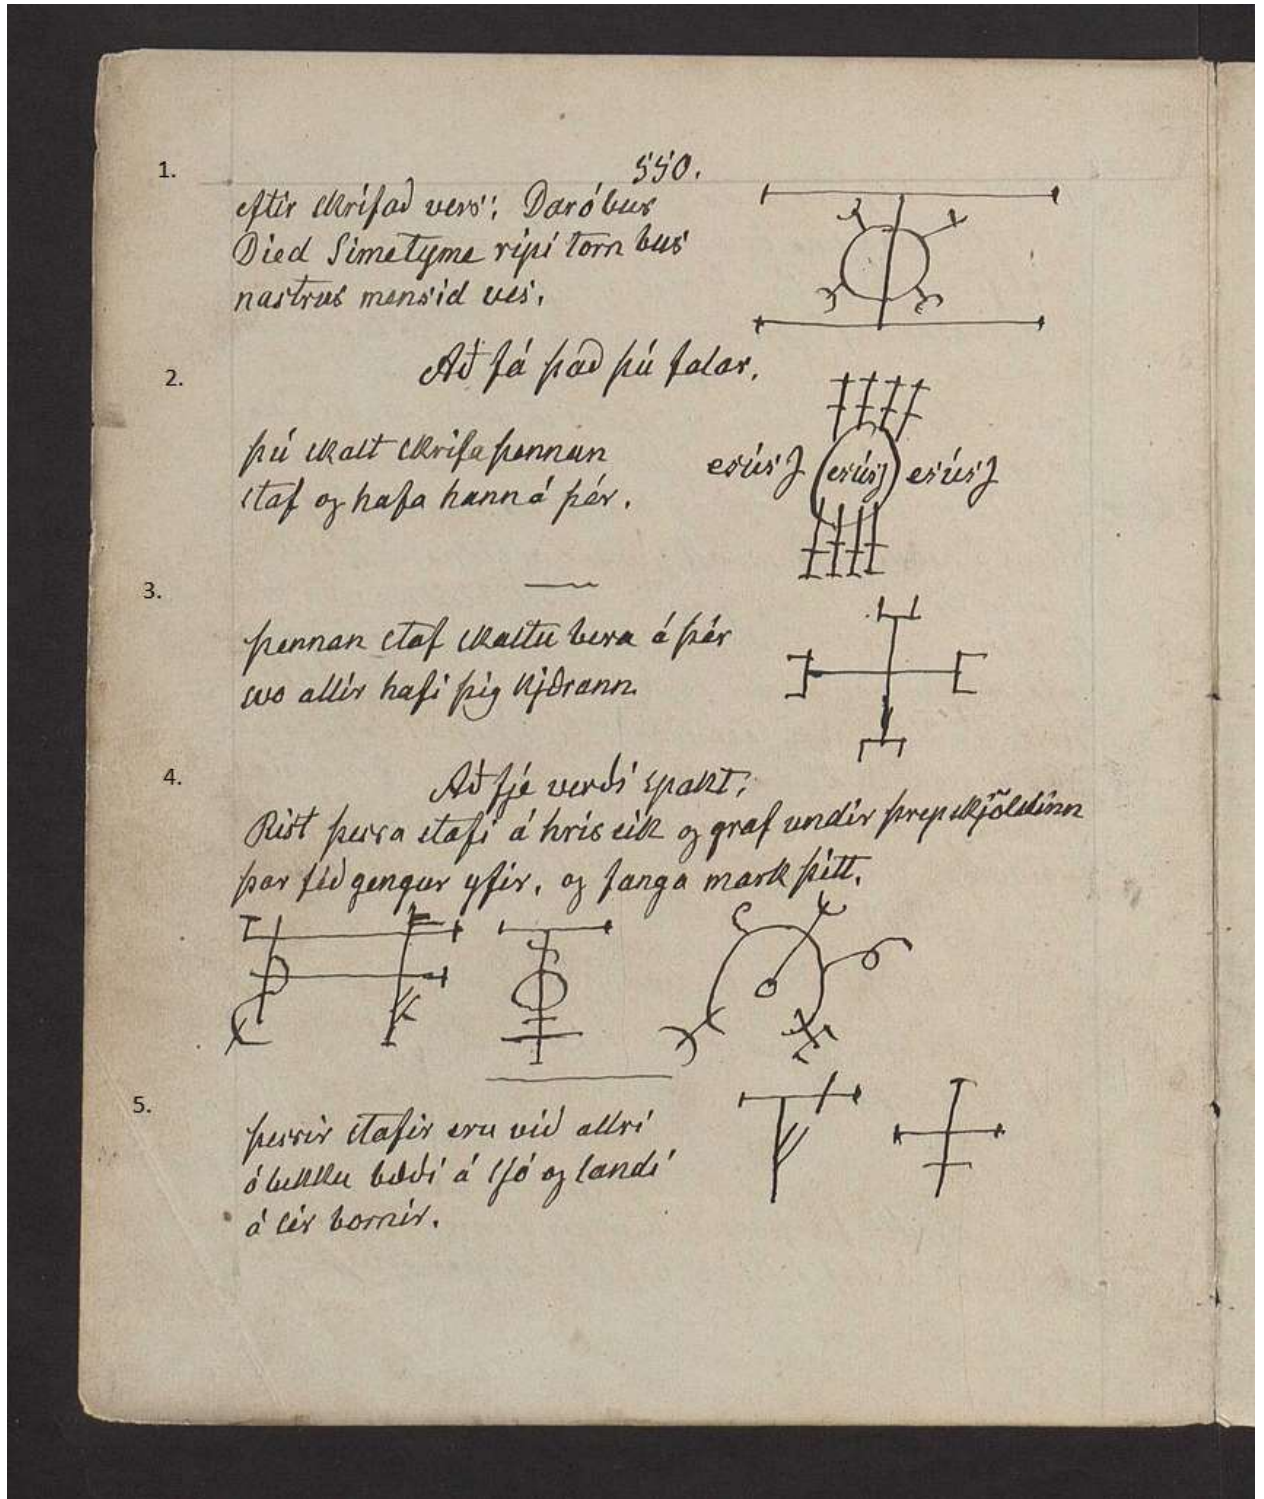 1.
550.
eftir skrifað vers: Daróbus
Died Simetyme ripi torn bus
nastrus mensid ves.
2.
Að fá það þú falar.
þú skalt skrifa þennan
staf og hafa hann á þér.
esúsJ (esúsJ) esúsJ
3.
þennan staf skaltu bera á þér
svo allir hafi þig kjæran
4.
Að fje verði spakt.
Rist þessa stafi á hrís eik og graf undir þrepskjöldinn
þar féð gengur yfir, og fanga mark þitt.
5.
þessir stafir eru við allri
ólukku bæði á sjó og landi
á sér bornir.